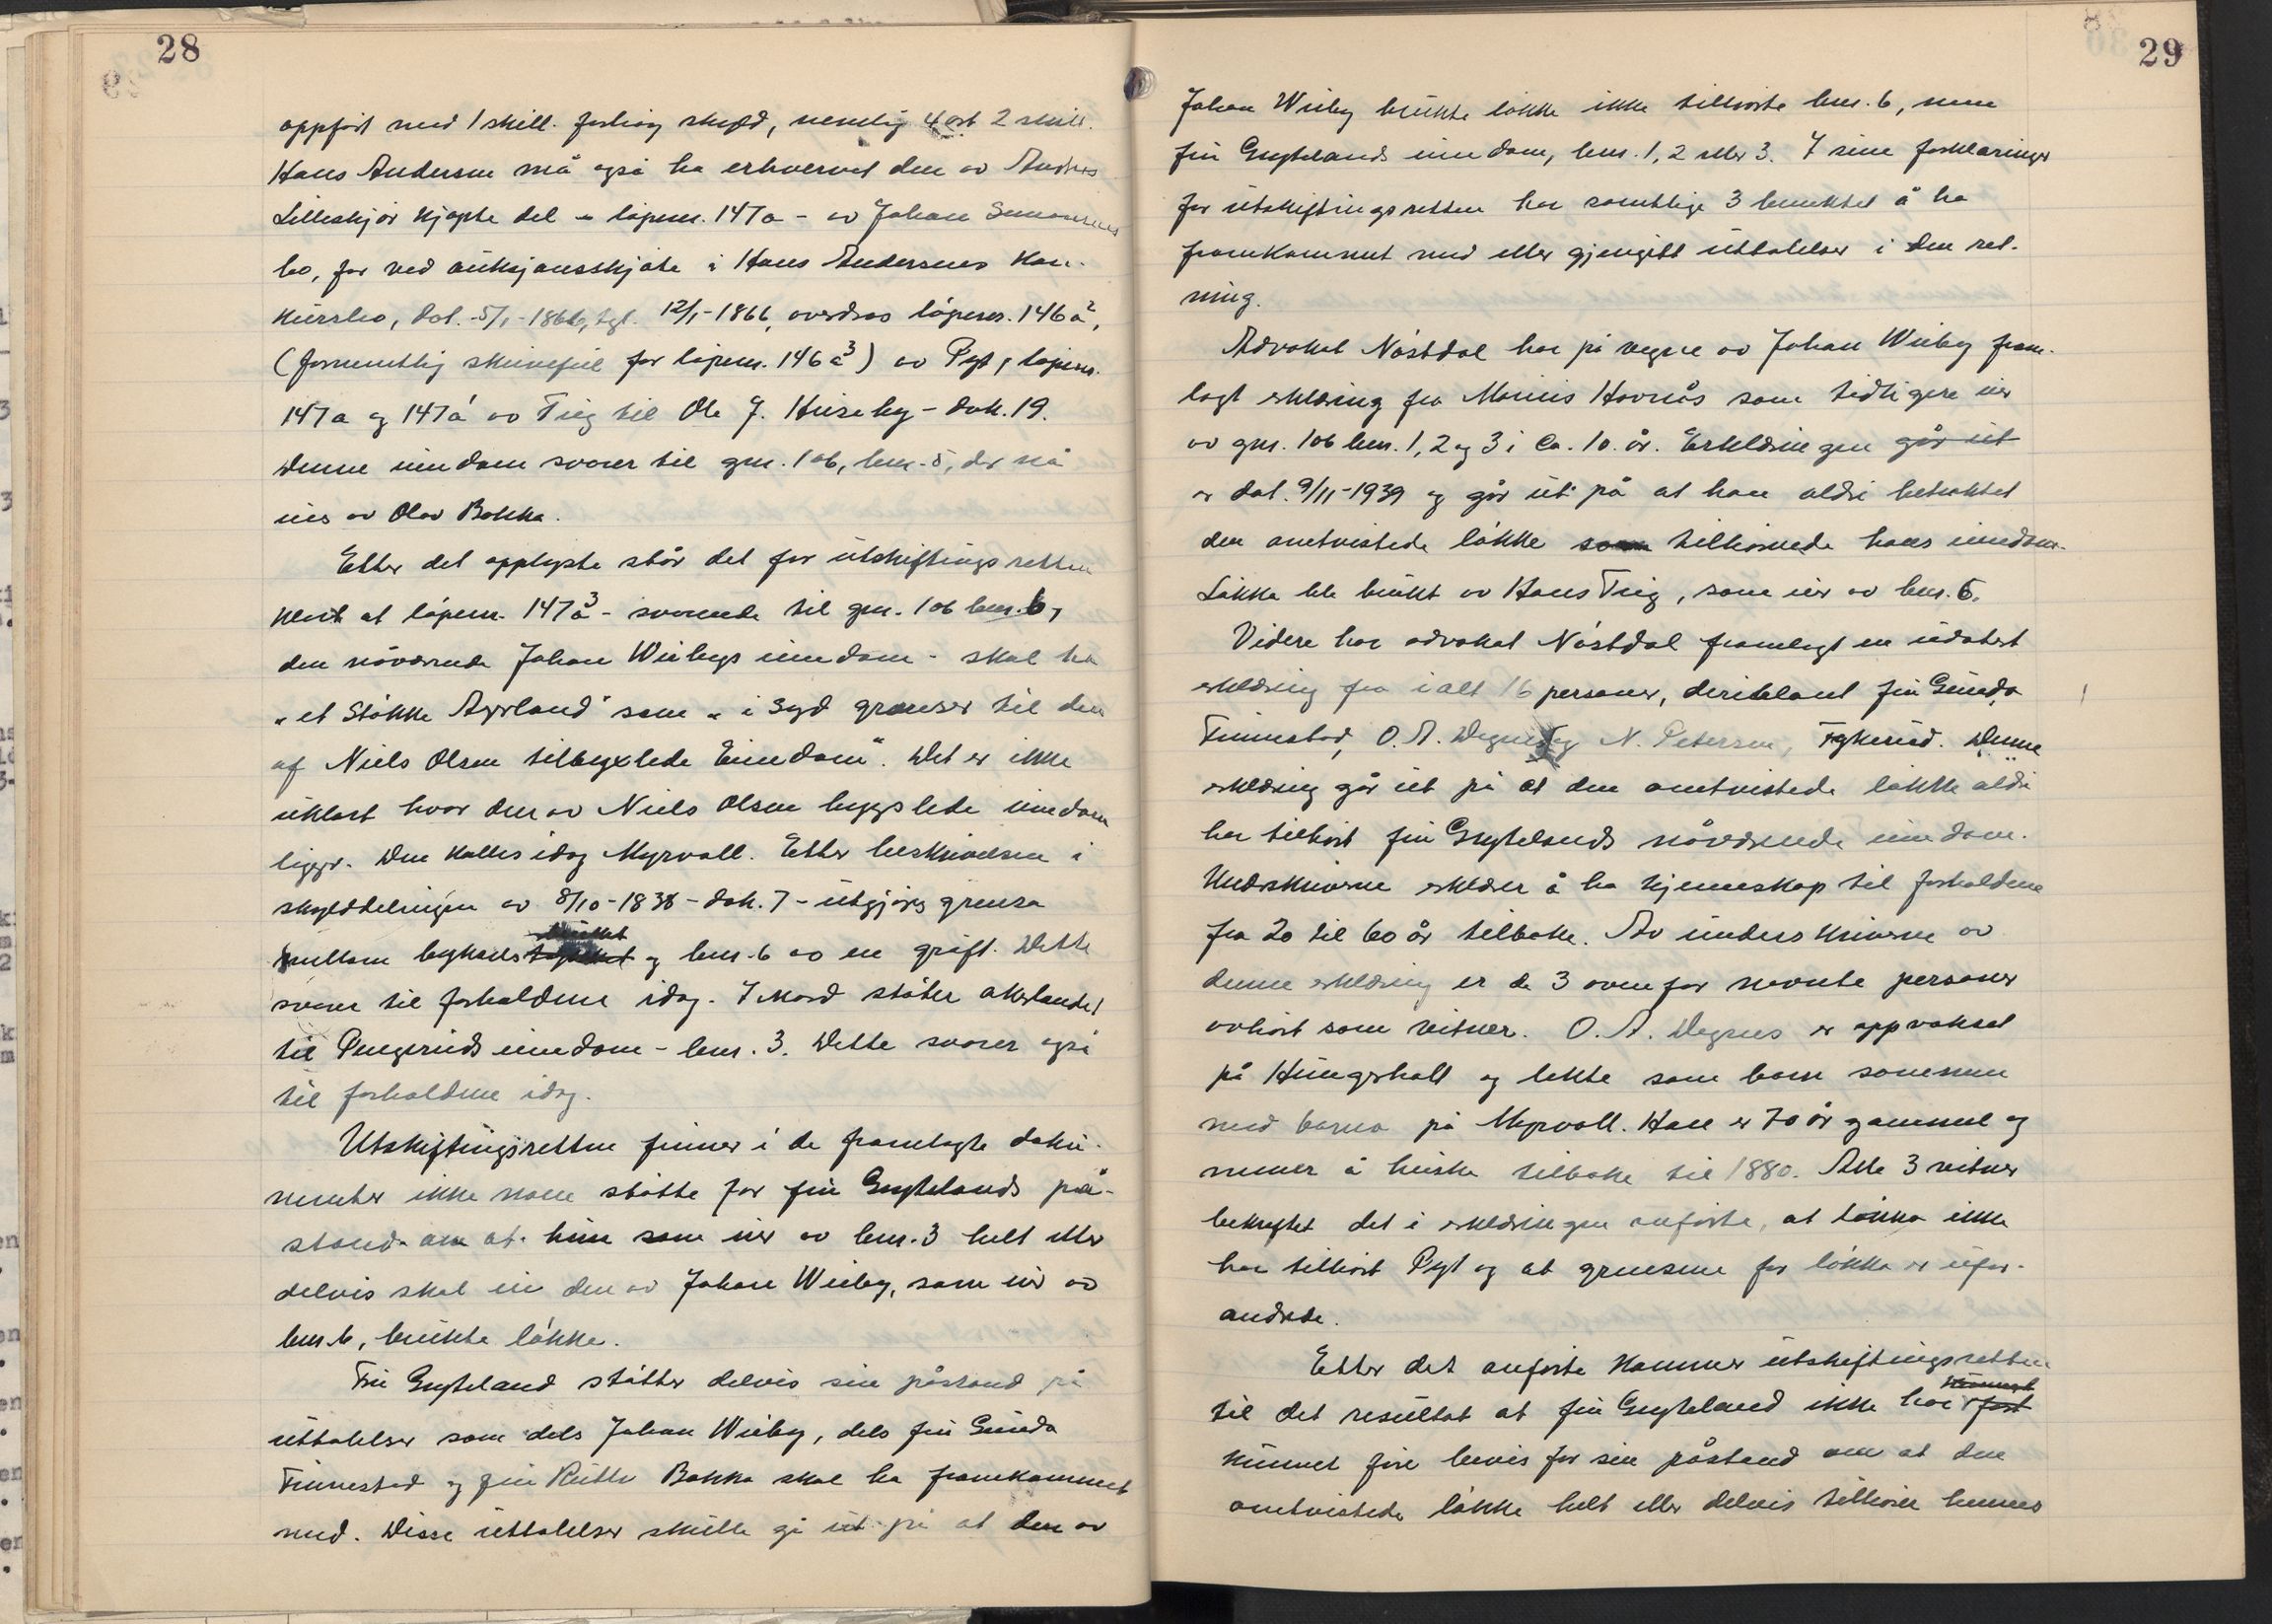 28
oppført med 1 skill. forhøy skyld, nemlig 4 ort 2 skill.
Hans Andersen må også ha erhvervet den av Andreas
Lilleskjør kjøpte del - løpenr. 147a - av Johan Simonsens
bo, for ved auksjonsskjøte i Hans Andersens kon-
kursbo, dat. 5/1-1866, tgl. 12/1-1866, overdras løpenr. 146a²,
(formentlig skrivefeil for løpenr. 146a³) av Pyt, løpenr.
147a og 147a¹ av Teig til Ole J. Huseby - dok. 19.
Denne eiendom svarer til gnr. 106, bnr. 5, der nå
eies av Olav Bakka.
Etter det opplyste står det for utskiftingsretten
klart at løpenr. 147a³ - svarende til gnr. 106 bnr. 6,
den nåværende Johan Wiebys eiendom - skal ha
"et Støkke Agerland" som "i Syd grænser til den
af Niels Olsen tilbyxlede Eiendom". Det er ikke
uklart hvor den av Niels Olsen bygslede eiendom
ligger. Den kalles idag Myrvoll. Etter beskrivelsen i
skylddelingen av 8/10-1838 - dok. 7 - utgjøres grensa
mellom bygsels og bnr. 6 av en grøft. Dette
svarer til forholdene idag. I Nord støter akerlandet
til Pengeruds eiendom - bnr. 3. Dette svarer også
til forholdene idag.
Utskiftingsretten finner i de framlagte doku-
menter ikke noen støtte for fru Grytelands på-
stand om at hun som eier av bnr. 3 helt eller
delvis skal eie den av Johan Wieby, som eier av
bnr. 6, brukte løkke.
Fru Gryteland støtter delvis sin påstand på
uttalelser som dels Johan Wieby, dels fru Gunda
Finnestad og fru Ruth Bakka skal ha framkommet
med. Disse uttalelser skulle gå ut på at den av
29
Johan Wieby brukte løkke ikke tilhørte bnr. 6, men
fru Grytelands eiendom, bnr. 1, 2 eller 3. I sine forklaringer
for utskiftingsretten har samtlige 3 benektet å ha
framkommet med eller gjengitt uttalelser i den ret-
ning.
Advokat Nøstdal har på vegne av Johan Wieby fram-
lagt erklæring fra Marius Hovnås som tidligere eier
av gnr. 106 bnr. 1, 2 og 3 i ca. 10 år. Erklæringen går ut
er dat. 9/11-1939 og går ut på at han aldri betraktet
den omtvistede løkke som tilhørende hans eiendom.
Løkka ble brukt av Hans Teig, som eier av bnr. 6.
Videre har advokat Nøstdal framlagt en udatert
erklæring fra ialt 16 personer, deriblant fru Gunda
Finnestad, O. A. Degnes og N. Petersen, Fykerud. Denne
erklæring går ut på at den omtvistede løkke aldri
har tilhørt fru Grytelands nåværende eiendom.
Underskriverne erklærer å ha kjennskap til forholdene
fra 20 til 60 år tilbake. Av underskriverne av
denne erklæring er de 3 ovenfor nevnte personer
avhørt som vitner. O. A. Degnes er oppvokset
på Kungshall og lekte som barn sammen
med barna på Myrvoll. Han er 70 år gammel og
mener å huske tilbake til 1880. Alle 3 vitner
bekreftet det i erklæringen anførte, at løkka ikke
har tilhørt Pyt og at grensene for løkka er ufor-
andrede.
Etter det anførte kommer utskiftingsretten
til det resultat at fru Gryteland ikke har ført
kunnet føre bevis for sin påstand om at den
omtvistede løkke helt eller delvis tilhører hennes